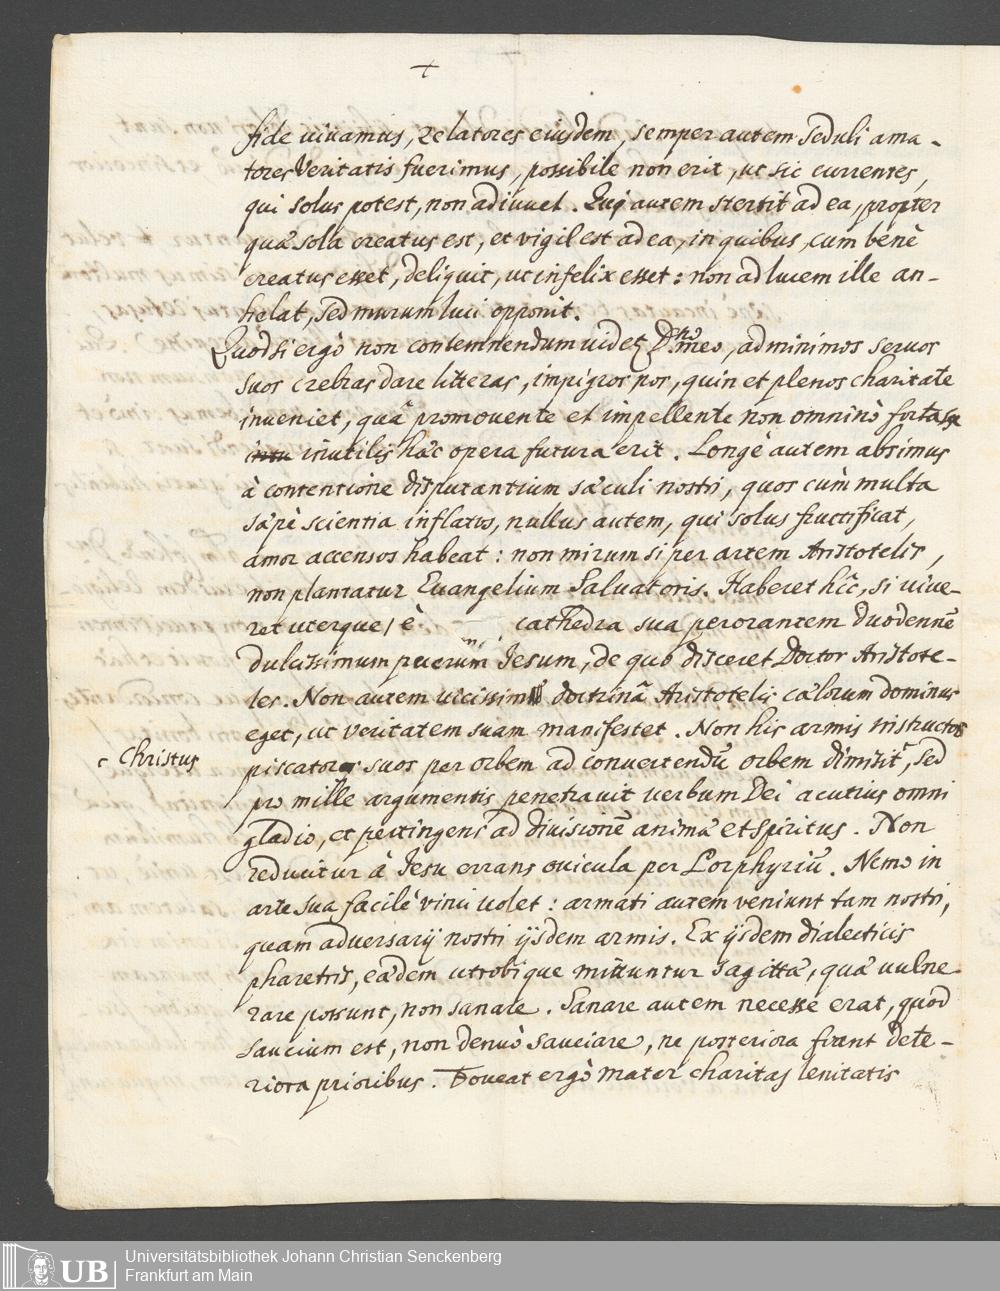 +
fide uiuamus, zelatores eiusdem, semper autem seduli ama-
tores Veritatis fuerimus, possibile non erit, ut sic currentes,
qui solus potest, non adiuuet. Qui autem stertit ad ea, propter
quæ sola creatus est, et vigil est ad ea, in quibus, cum benè
creatus esset, deliquit, ut infelix esset: non ad lucem ille an-
helat, sed murum luci opponit.
Quodsi ergò non contemnendum uidet D.no meo, ad minimos seruos
suos crebras dare litteras, impigros nos, quin et plenos charitate
inueniet, quâ promouente et impellente non omninò fortasse
inutilis hæc opera futura erit. Longè autem absimus
à contentione disputantium sæculi nostri, quos cùm multa
sæpè scientia inflatos, nullus autem, qui solus fructificat,
amor accensos habeat: non mirum si per artem Aristotelis,
non plantatur Euangelium Saluatoris. Haberet hic, si viue-
ret uterque, è cathedra sua perorantem duodennē
dulcissimum puerum Jesum, de quo disceret Doctor Aristote-
les. Non autem uicissim doctrinâ Aristotelis cælorum dominus
eget, ut veritatem suam manifestet. Non his armis instructos
┌ Christus
piscatores suos per orbem ad conuertendū orbem dimisit ┌, sed
pro mille argumentis penetrauit uerbum Dei acutius omni
gladio, et pertingens ad diuisionē animæ et spiritus. Non
reducitur à Jesu errans ouicula per Porphyriū. Nemo in
arte sua facilè vinci uolet: armati autem veniunt tam nostri,
quam adversarij nostri ijsdem armis. Ex ijsdem dialecticis
pharetris, eædem utrobique mittuntur sagittæ, quæ uulne-
rare possunt, non sanare. Sanare autem necesse erat, quod
saucium est, non denuò sauciare, ne posteriora fiant dete-
riora prioribus. Doueat ergò mater charitas lenitatis
UB
Universitätsbibliothek Johann Christian Senckenberg
Frankfurt am Main